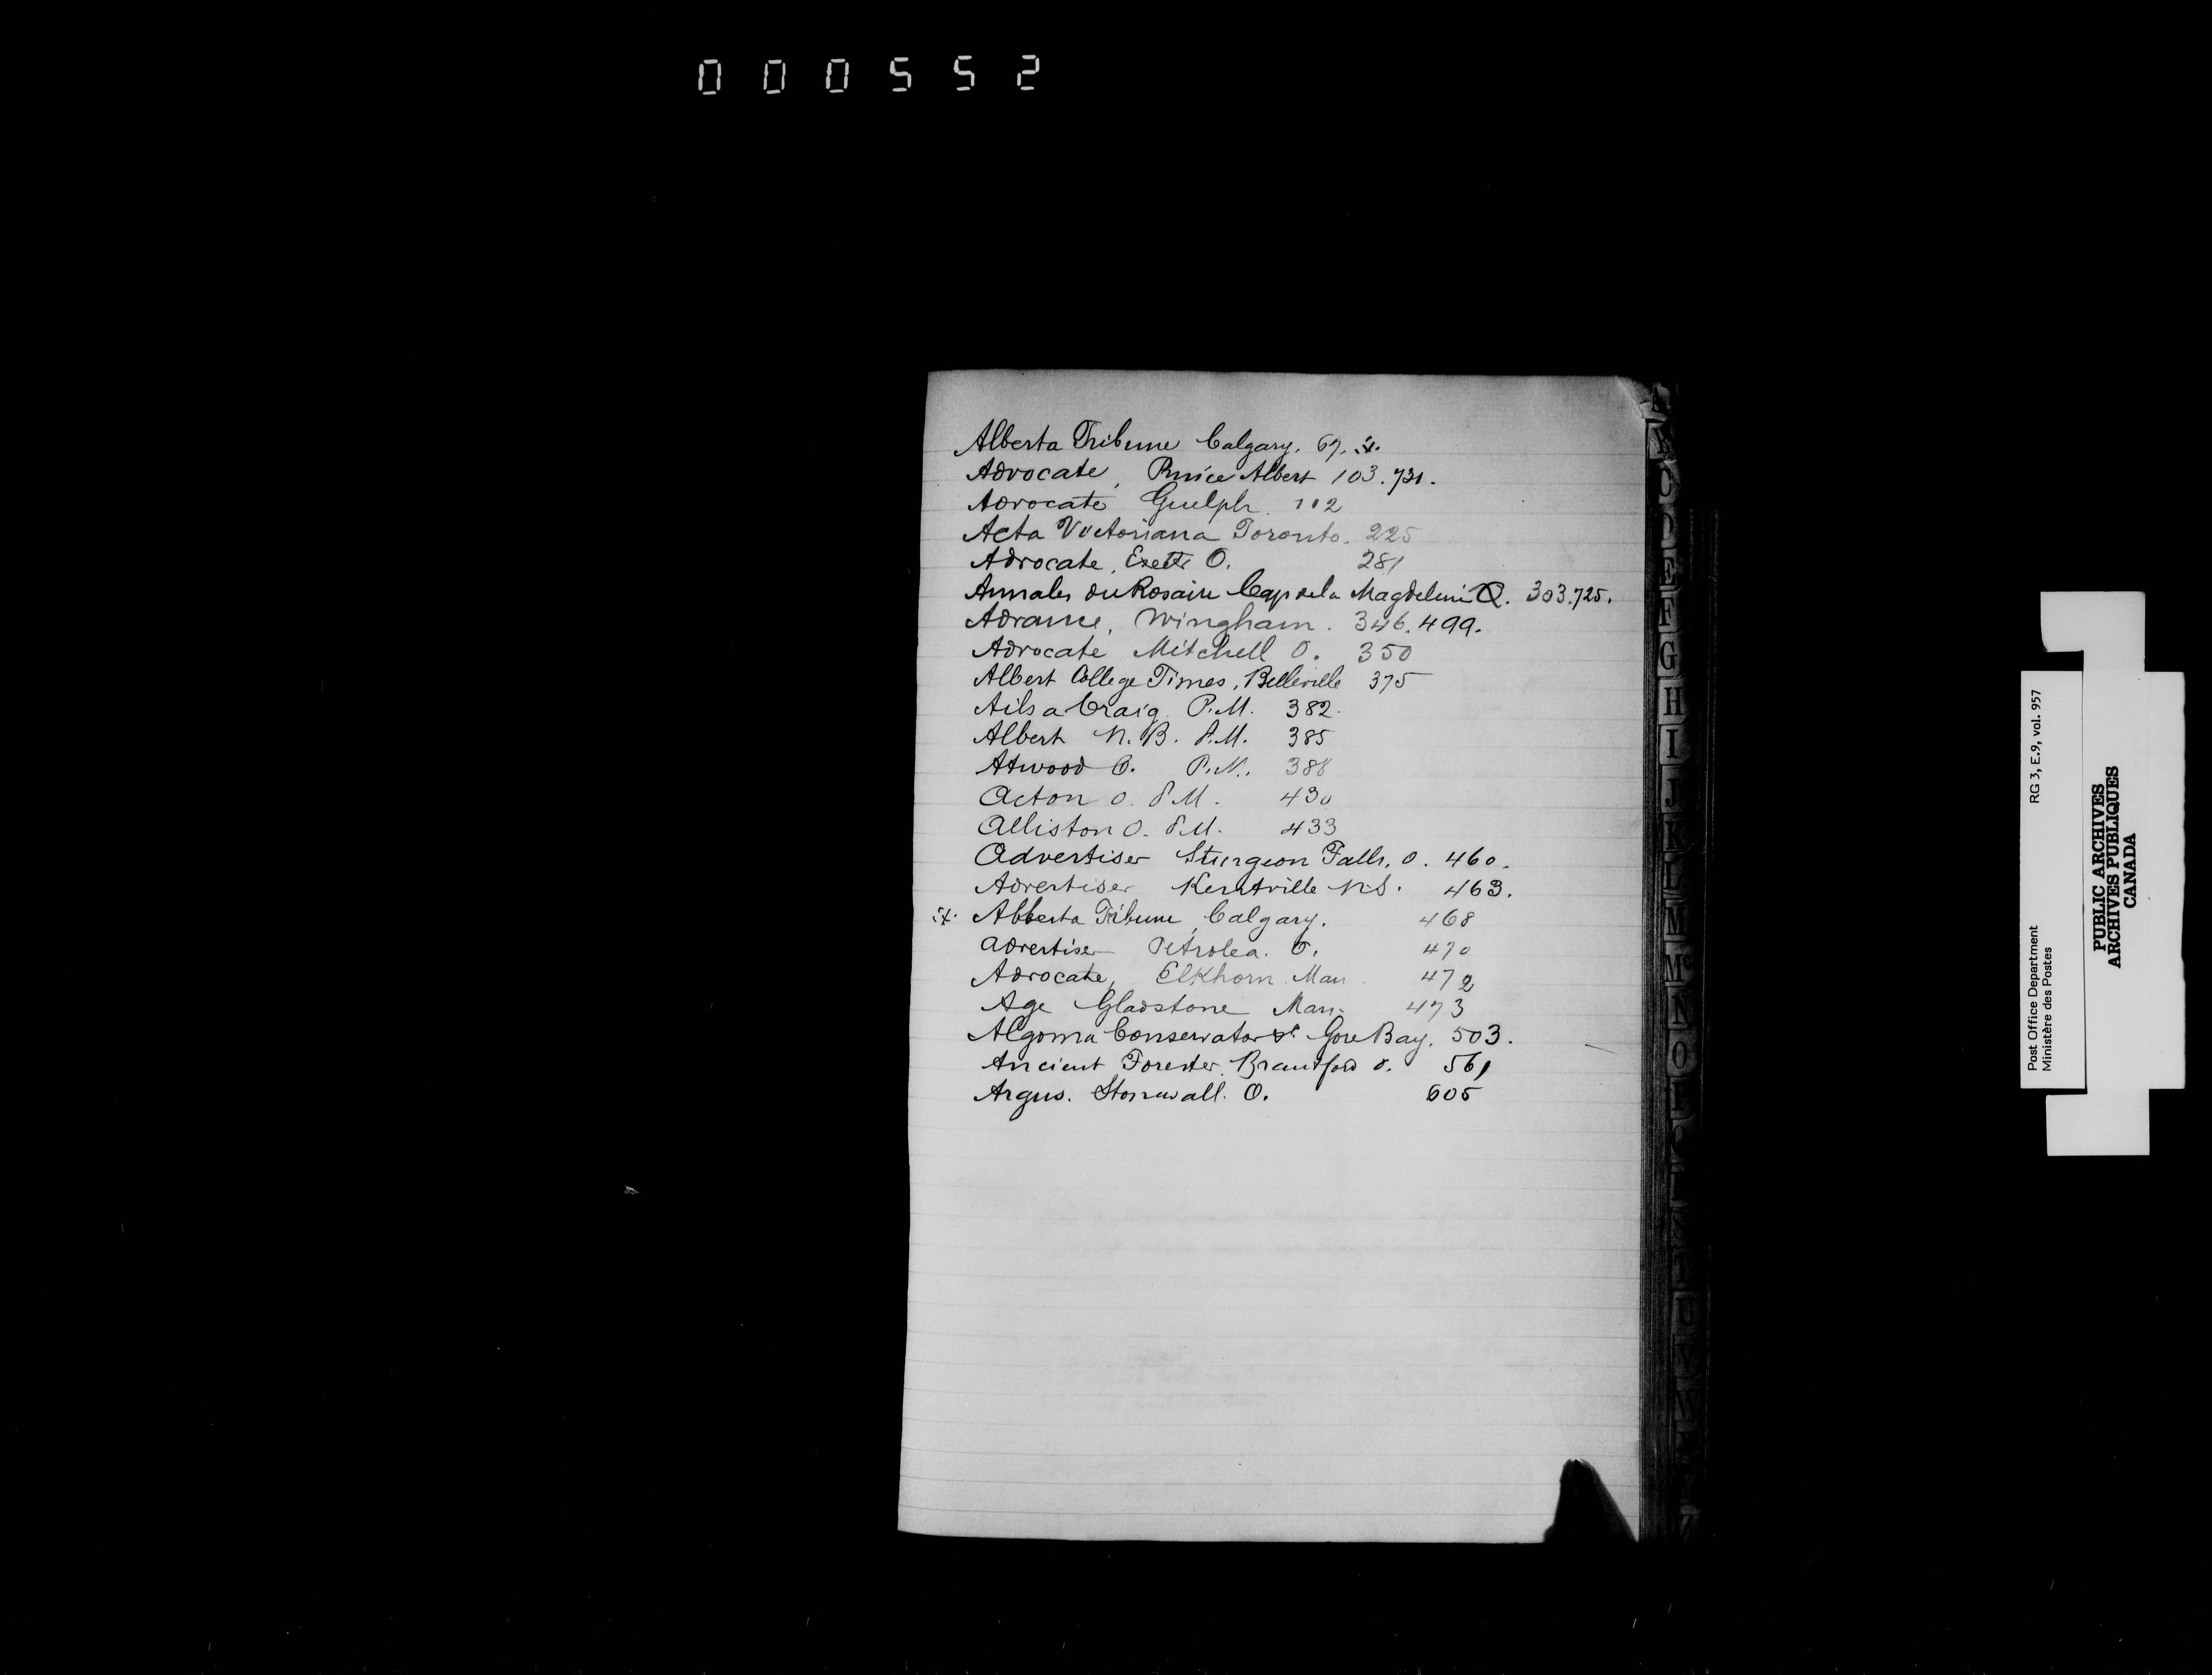 000552
Alberta Tribune Calgary. 67. :x:
Advocate, Prince Albert 103. 731.
Advocate Guelph. 112
Acta Victoriana Toronto. 225
Advocate, Exeter O. 281
Annales du Rosaire Cap de la Magdeleine Q. 303. 725.
Advance, Wingham. 346. 499.
Advocate Mitchell O. 350
Albert College Times, Belleville 375
Ailsa Craig P.M. 382.
Albert N.B. P.M. 385
Atwood O. P.M. 388
Acton O. P.M. 430
Alliston O. P.M. 433
Advertiser Sturgeon Falls, O. 460.
Advertiser Kentville N.S. 463.
:x: Alberta Tribune, Calgary. 468
Advertiser Petrolea. O. 470
Advocate, Elkhorn Man 472
Age Gladstone Man. 473
Algoma Conservator Gore Bay. 503.
Ancient Forester. Brantford O. 561
Argus. Stonewall. O. 605
A
C
D
E
F
G
H
I
J
K
L
M
Mc
N
O
U
V
W
Post Office Department RG 3, E.9, vol. 957
Ministère des Postes
PUBLIC ARCHIVES
ARCHIVES PUBLIQUES
CANADA